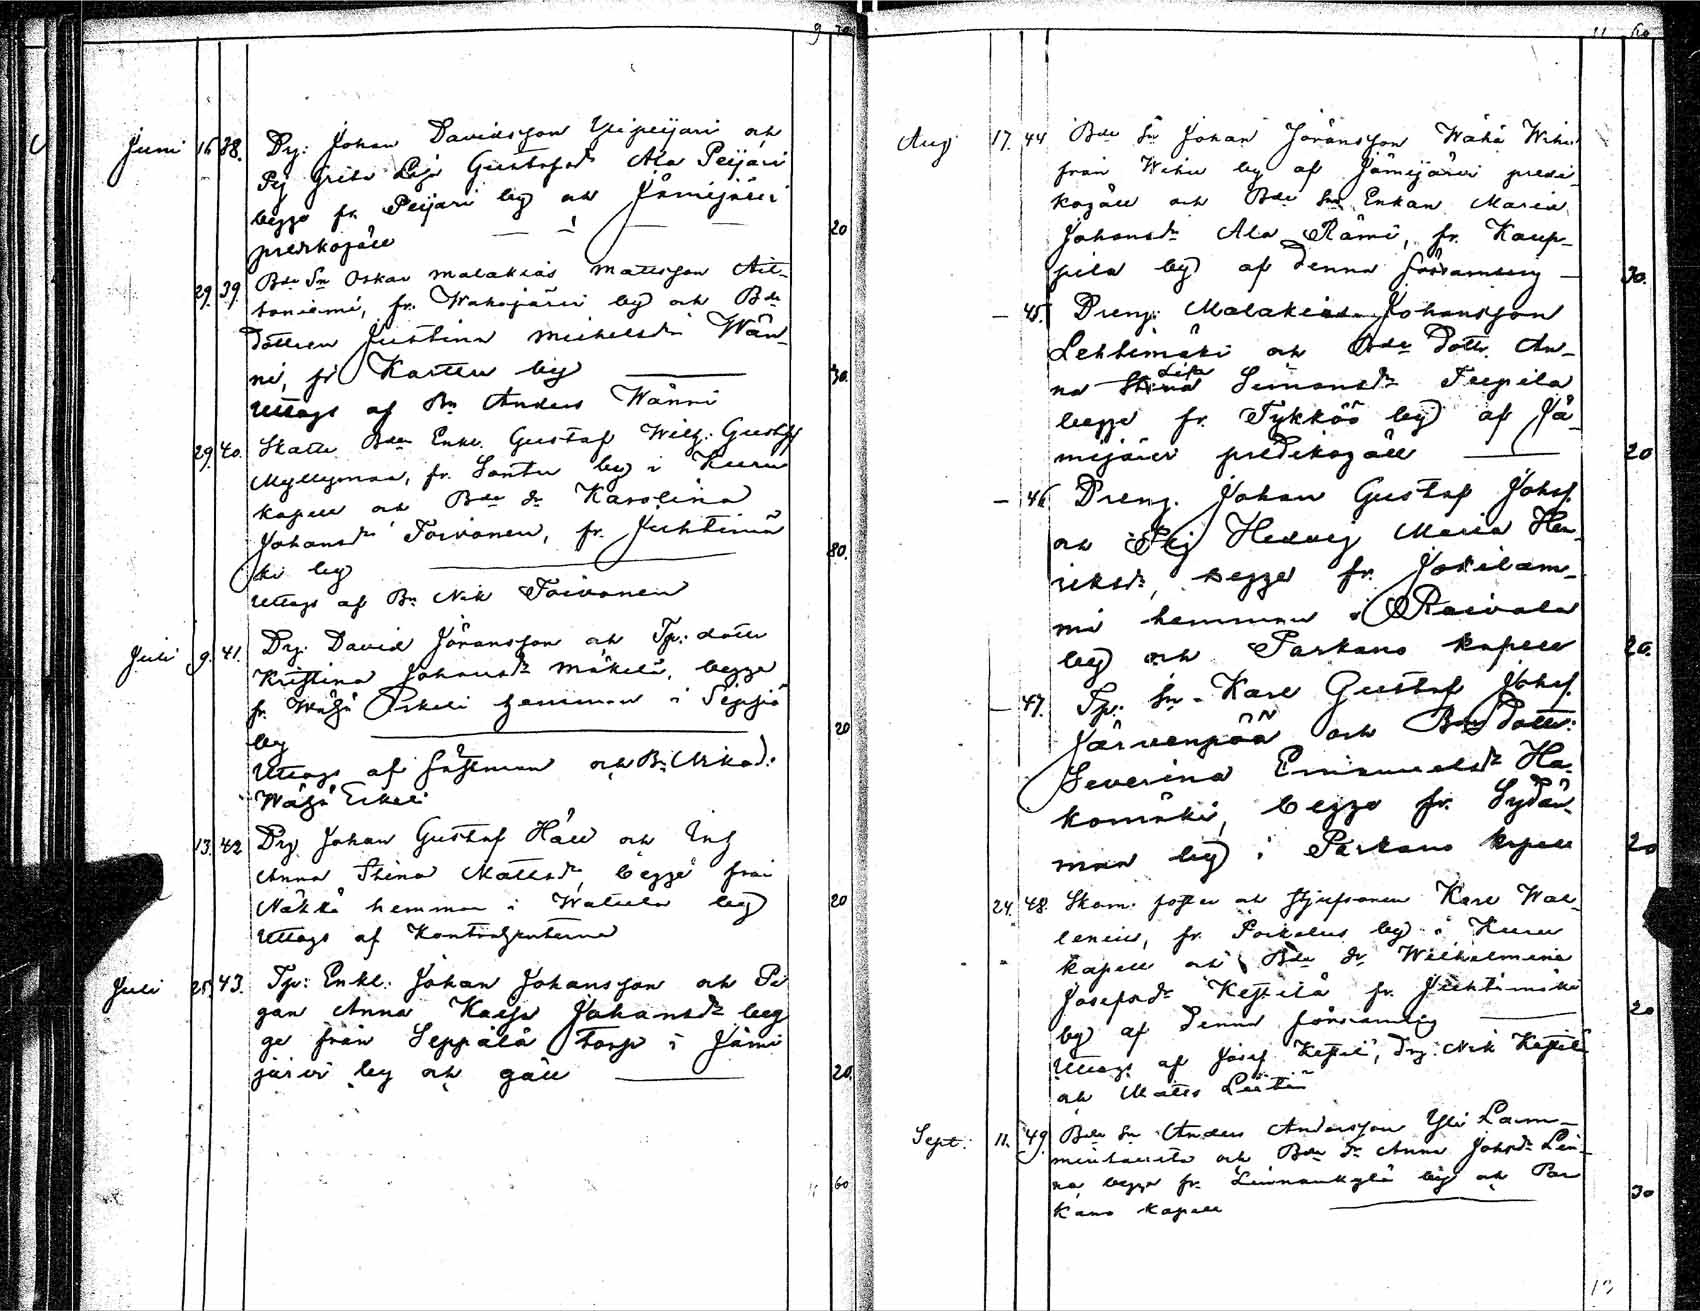 9 70
Juni 16. 38. Drg: Johan Davidsson Ylipeijari och
Pig Greta Lisa Gustafsdr Ala Peijari
begge fr. Peijari by och Jämijärvi
predikogäll 20
29. 39. Bde Sn Oskar Malakias Mattsson
toniemi, fr. Wahojärvi by och Bde
dottren Justina Michelsdr Wän-
ni, fr Karttu by 30.
Uttogs af Bn Anders Wänni
29. 40. Skatte Bde Enkl. Gustaf Wilh: Gustfs
Myllymaa, fr. Sontu by i Kuru
kapell och Bde dr Karolina
Johansdr Toivonen, fr. Juhtimä
ki by 80.
Uttogs af Bn Nik Toivonen
Juli 9. 41. Drg. David Göransson och Tp: dotter
Kristina Johansdr Mäkelä, begge
fr. Wähä Erkeli hemman i
by 20
Uttogs af fästman och Bn Nikod:
Wähä Erkeli
13. 42 Drg Johan Gustaf Häll och Inh
Anna Stina Mattsdr, begge från
Näkkä hemman i Watula by 20
Uttogs af Kontrahenterna
Juli 25. 43. Tp: Enkl. Johan Johansson och Pi
gan Anna Kajsa Johansdr beg
ge från Seppälä torp i Jämi
järvi by och gäll 20.
60
11 60
Aug 17. 44 Bde Sn Johan Göransson Wähä Wihu
från Wihu by af Jämijärvi predi
kogäll och Bde Sns Enkan Maria
Johansdr Ala Rämi, fr. Kaup-
pila by af denna församling 30.
— 45. Dreng: Malakias Johansson
Lehtimäki och Bde Dottr. An-
na Stina Lisa Simonsdr Teepila
begge fr. Tykköö by af Jä-
mijärvi predikogäll 20
— 46 Dreng. Johan Gustaf Johsf.
och Pig Hedvig Maria Hen-
riksdr, begge fr. Jokilam-
mi hemman i Raivala
by och Parkano kapell 20.
— 47. Tp: Sn. Karl Gustaf Johsf.
Järvenpää och Bn Dottr:
Severina Emanuelsdr Ha-
komäki, begge fr. Sydän-
maa by i Parkano kapell 20
24. 48. Skom: och styfsonen Karl Wal-
lenius, fr. by i Kuru
kapell och Bde dr Wilhelmina
Josefsdr Kettilä fr. Juhtimäki
by af denna församling 20
Uttogs af Josef Kettilä, Drg: Nik Kettilä
och Matts
Sept. 11. 49. Bde Sn Anders Andersson Yli Lam-
minhaista och Bde dr Anna Johsdr Lin-
na begge fr. Linnankylä by och Par
kano kapell 30